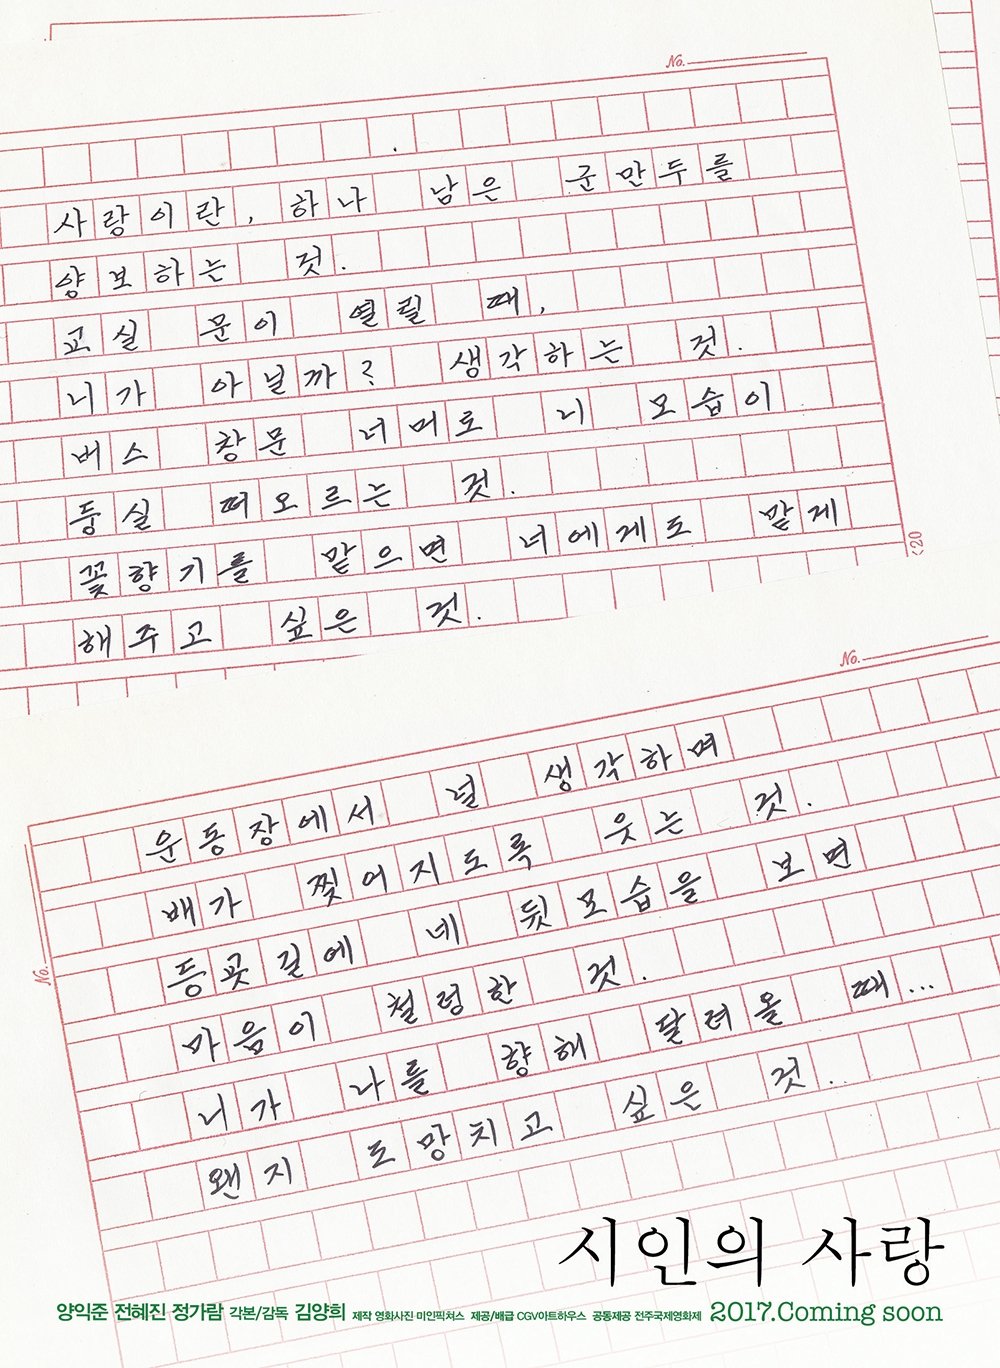 No.
사랑이란, 하나 남은 군만두를
양보하는 것.
교실 문이 열릴 때,
니가 아닐까? 생각하는 것.
버스 창문 너머로 니 모습이
둥실 떠오르는 것.
꽃향기를 맡으면 너에게도 맡게
해주고 싶은 것.
No.
운동장에서 널 생각하며
배가 찢어지도록 웃는 것.
등굣길에 네 뒷모습을 보면
마음이 철렁한 것.
니가 나를 향해 달려올 때...
왠지 도망치고 싶은 것..
No.
시인의 사랑
양익준 전혜진 정가람 각본/감독 김양희 제작 영화사진 미인픽쳐스 제공/배급 CGV아트하우스 공동제공 전주국제영화제 2017.Coming soon